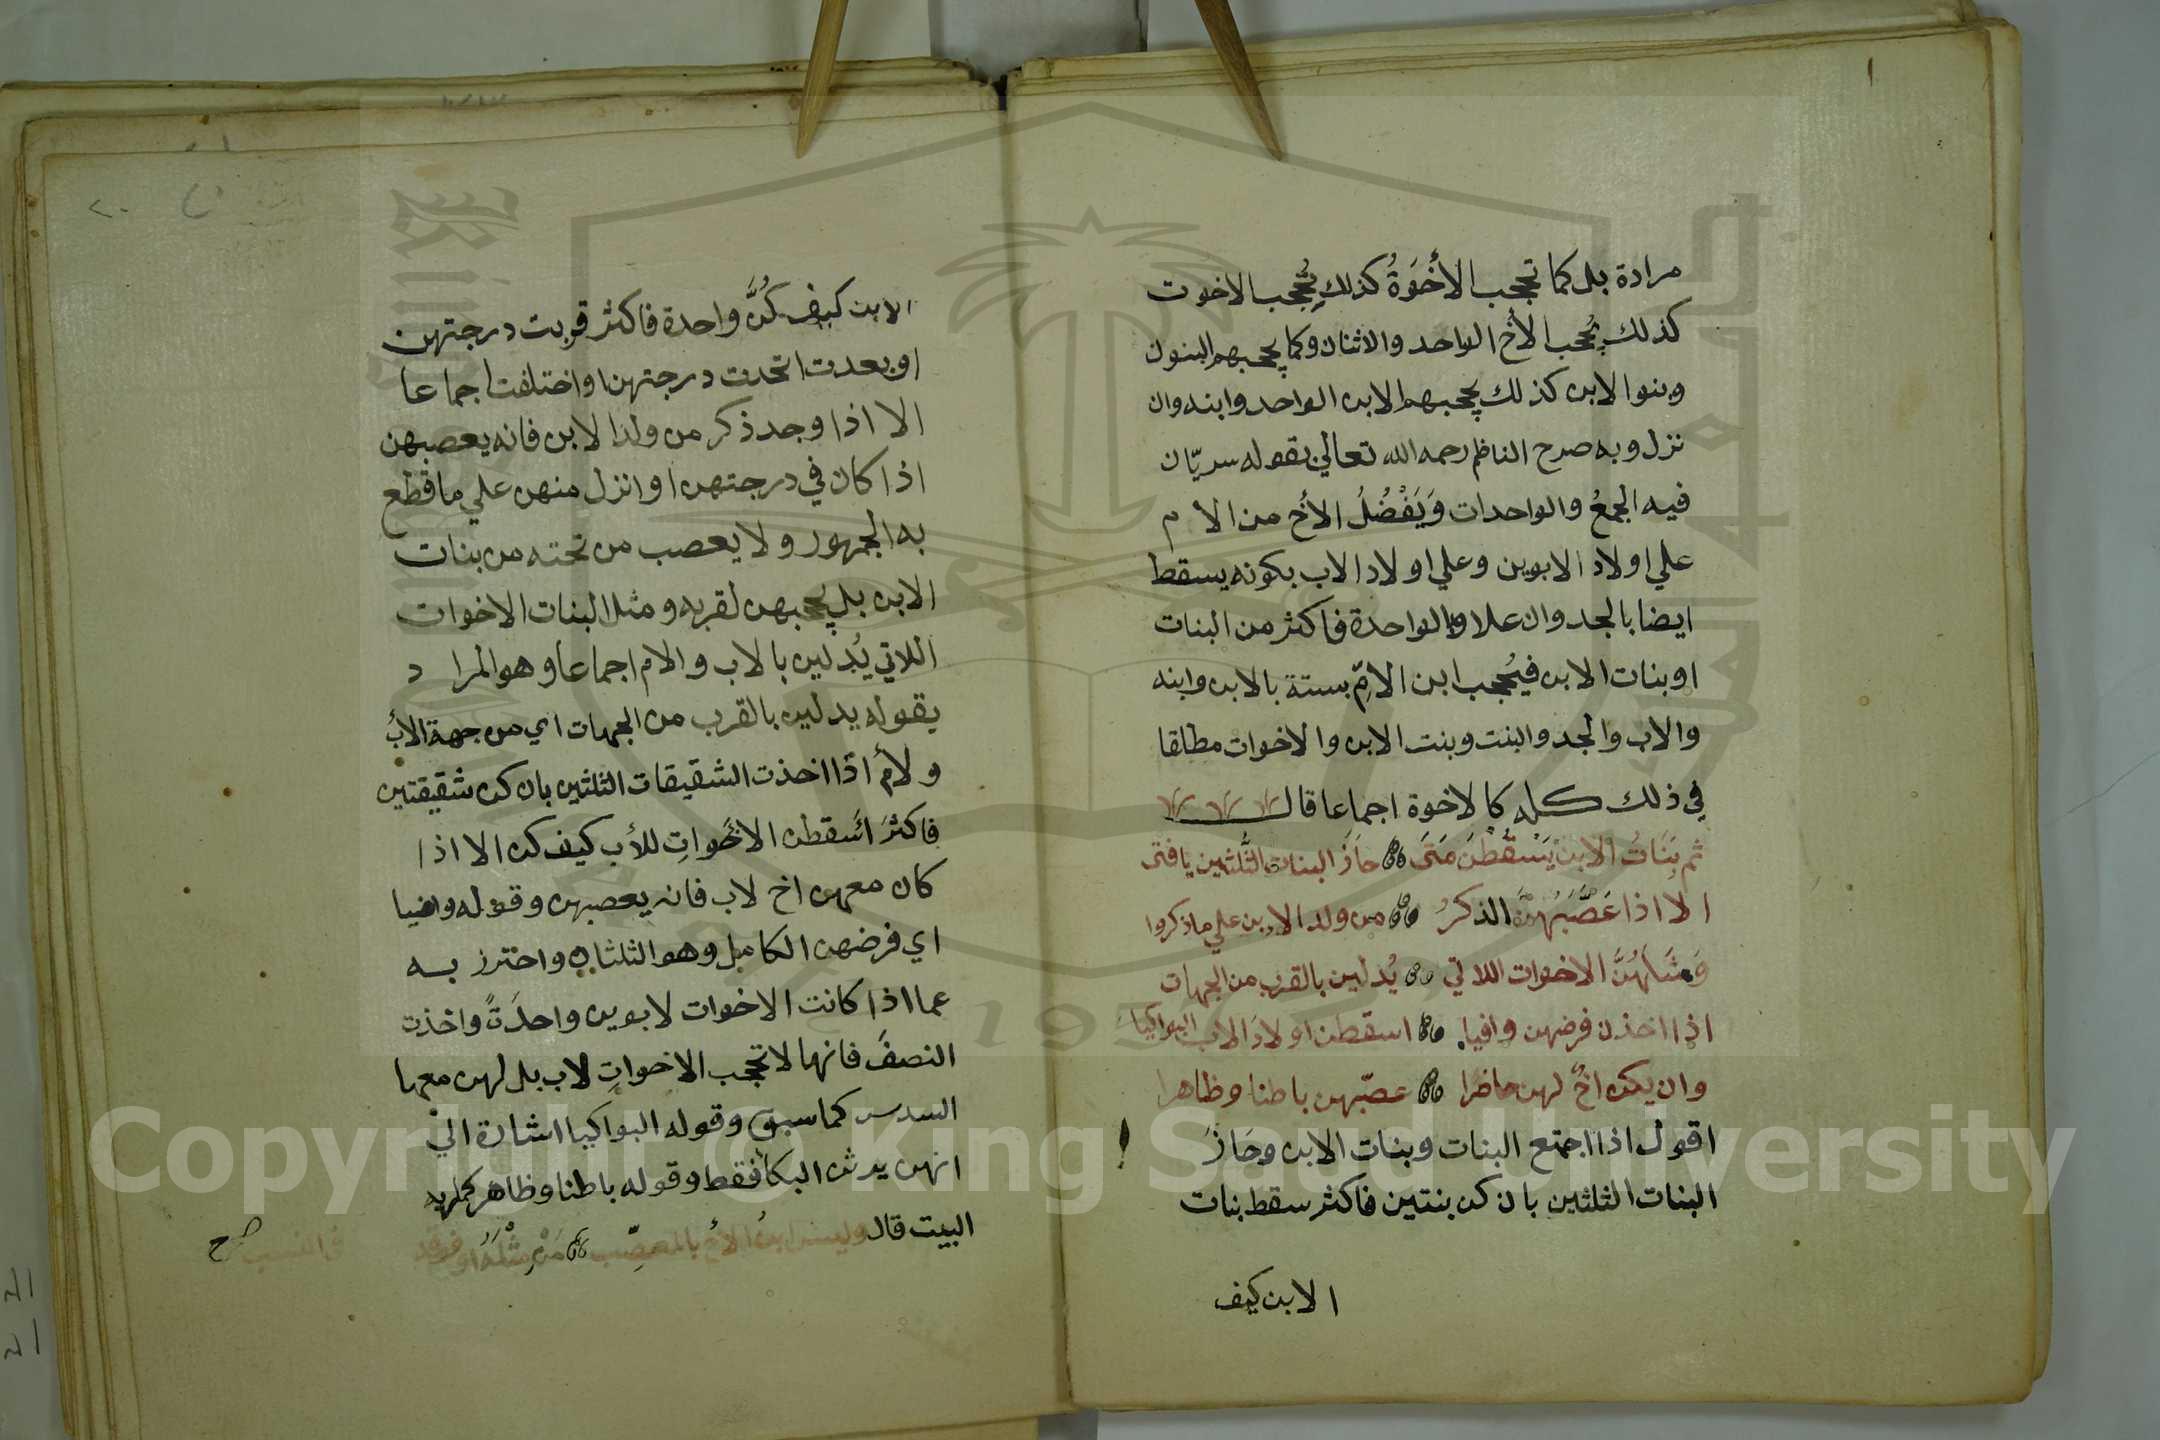 مرادة بل كما تحجب الأخَوَةُ كذلك يُحجب الاخوت
كذلك يُحجب الأخ الواحد والاثنان وكما يحجبهم البنون
وبنوا الابن كذلك يحجبهم الابن الواحد وابنه وان
نزل وبه صرح الناظم رحمه الله تعالي بقوله سريّان
فيه الجمعُ والواحدات وَيَفْضُلُ الأخ من الام
علي اولاد الابوين وعلي اولاد الاب بكونه يسقط
ايضا بالجد وان علا وبالواحدة فاكثر من البنات
او بنات الابن فيُحجب ابن الامّ بستة بالابن وابنه
والاب والجد والبنت وبنت الابن والاخوات مطلقا
في ذلك كله كالاخوة اجماعا قال
ثم بَنَاتُ الابن يَسْقُطْنَ مَتَى حَازَ البنات الثُّلثين يا فتى
الا اذا عَصَّبَهُنَّ الذكرُ من ولد الابن علي ما ذكروا
وَمثلهُنَّ الاخوات اللاتي يُدلين بالقرب من الجهات
اذا اخذن فرضهن وافيا اسقطن اولادَ الاب البواكيا
وان يكن اخٌ لهن حاضرا عصّبهن باطنا وظاهرا
اقول اذا اجتمع البنات وبنات الابن وحَازَ
البنات الثلثين بان كن بنتين فاكثر سقط بنات
الابن كيف
٢٠
الابن كيف كُنَّ واحدة فاكثر قربت درجتهن
او بعدت اتحدت درجتهن او اختلفت اجماعا
الا اذا وجد ذكر من ولد الابن فانه يعصبهن
اذا كان في درجتهن او انزل منهن علي ما قطع
به الجمهور ولا يعصب من تحته من بنات
الابن بل يحجبهن لقربه ومثل البنات الاخوات
اللاتي يُدلين بالاب والام اجماعا وهو المراد
بقوله يدلين بالقرب من الجهات اي من جهة الأب
ولأم اذا اخذت الشقيقات الثلثين بان كن شقيقتين
فاكثرَ اَسقطن الاخَواتِ للأب كيف كن الا اذا
كان معهن اخ لاب فانه يعصبهن وقوله وافيا
اي فرضهن الكامل وهو الثلثان واحترز به
عما اذا كانت الاخوات لابوين واحدَتً واخذت
النصفَ فانها لا تحجب الاخواتِ لاب بل لهن معها
السدس كما سبق وقوله البواكيا اشارة الي
انهن يرثن البكأ فقط وقوله باطنا وظاهر كملربه
البيت قال وليسَ ابنُ الأخِ بالمعصّب مَنْ مثْلَهُ او فوقه في النسب صح